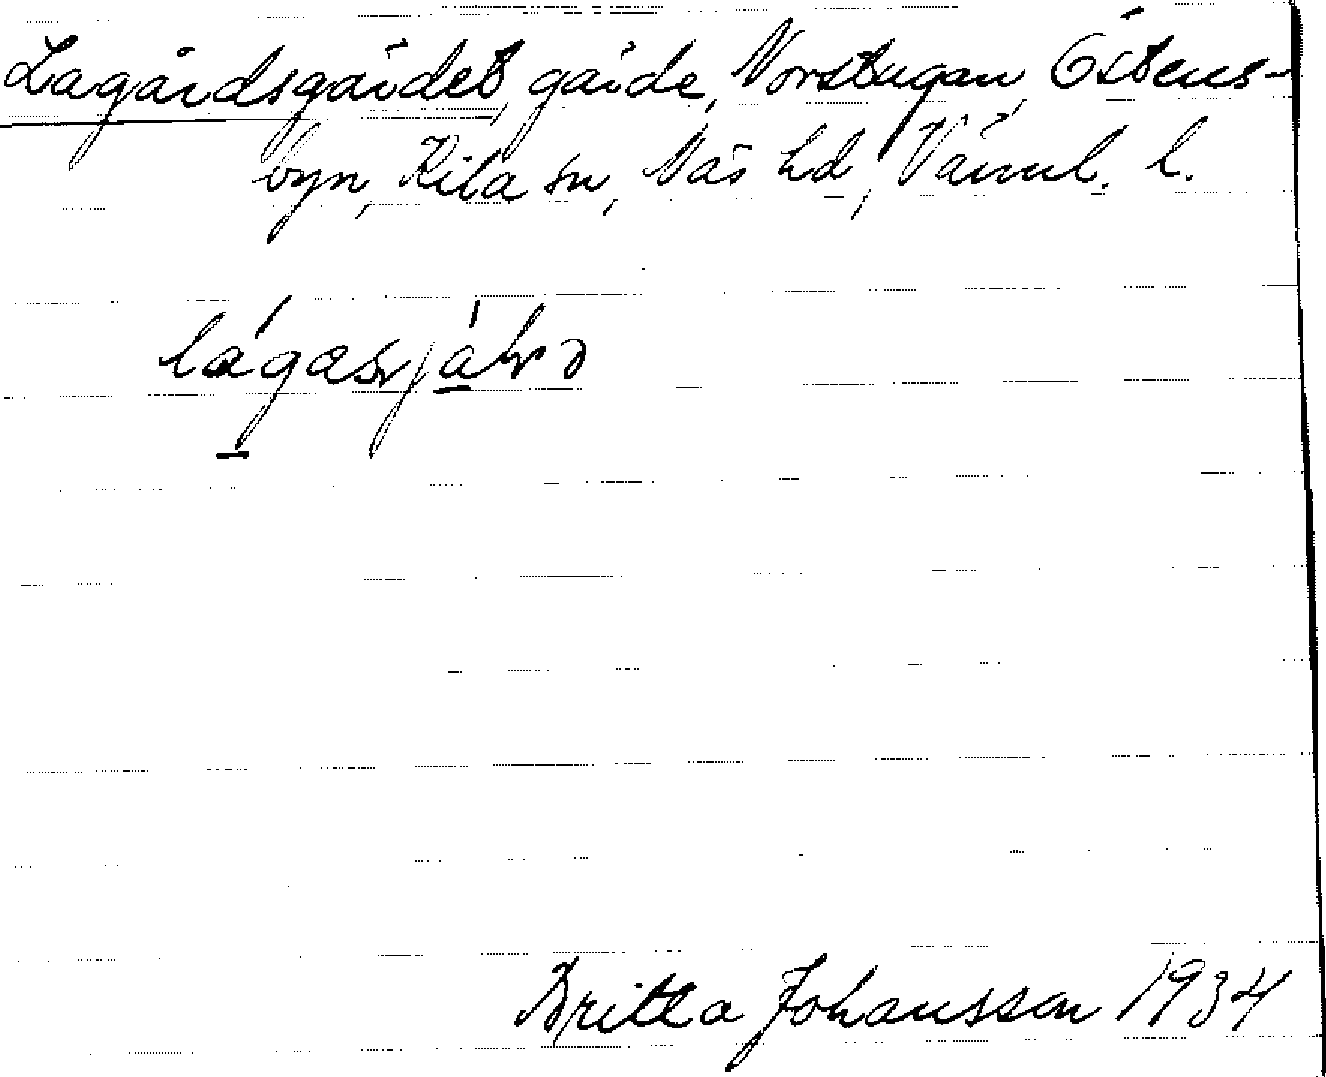 Lagårdsgärdet, gärde, Norstugan, Östens-
byn, Kila sn, Näs hd, Värml. l.
Britta Johansson 1934